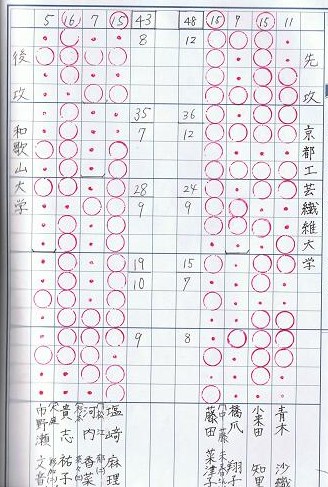 5 ⑯ 7 ⑮ 43 48 ⑮ 7 ⑮ 11
8 12
35 36
7 12
28 24
9 9
19 15
10 7
9 8
先攻 京都工芸繊維大学
後攻 和歌山大学
青木 沙織
小来田 知里
橋爪 翔子
藤田 菜津子
塩崎 麻理
河内 香菜
貴志 祐子
市野瀬 文香